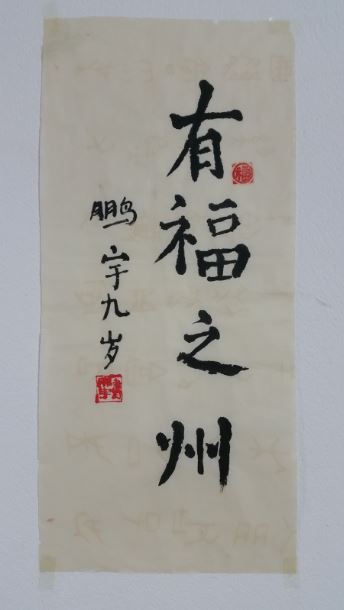 有福之州
福
鹏宇九岁